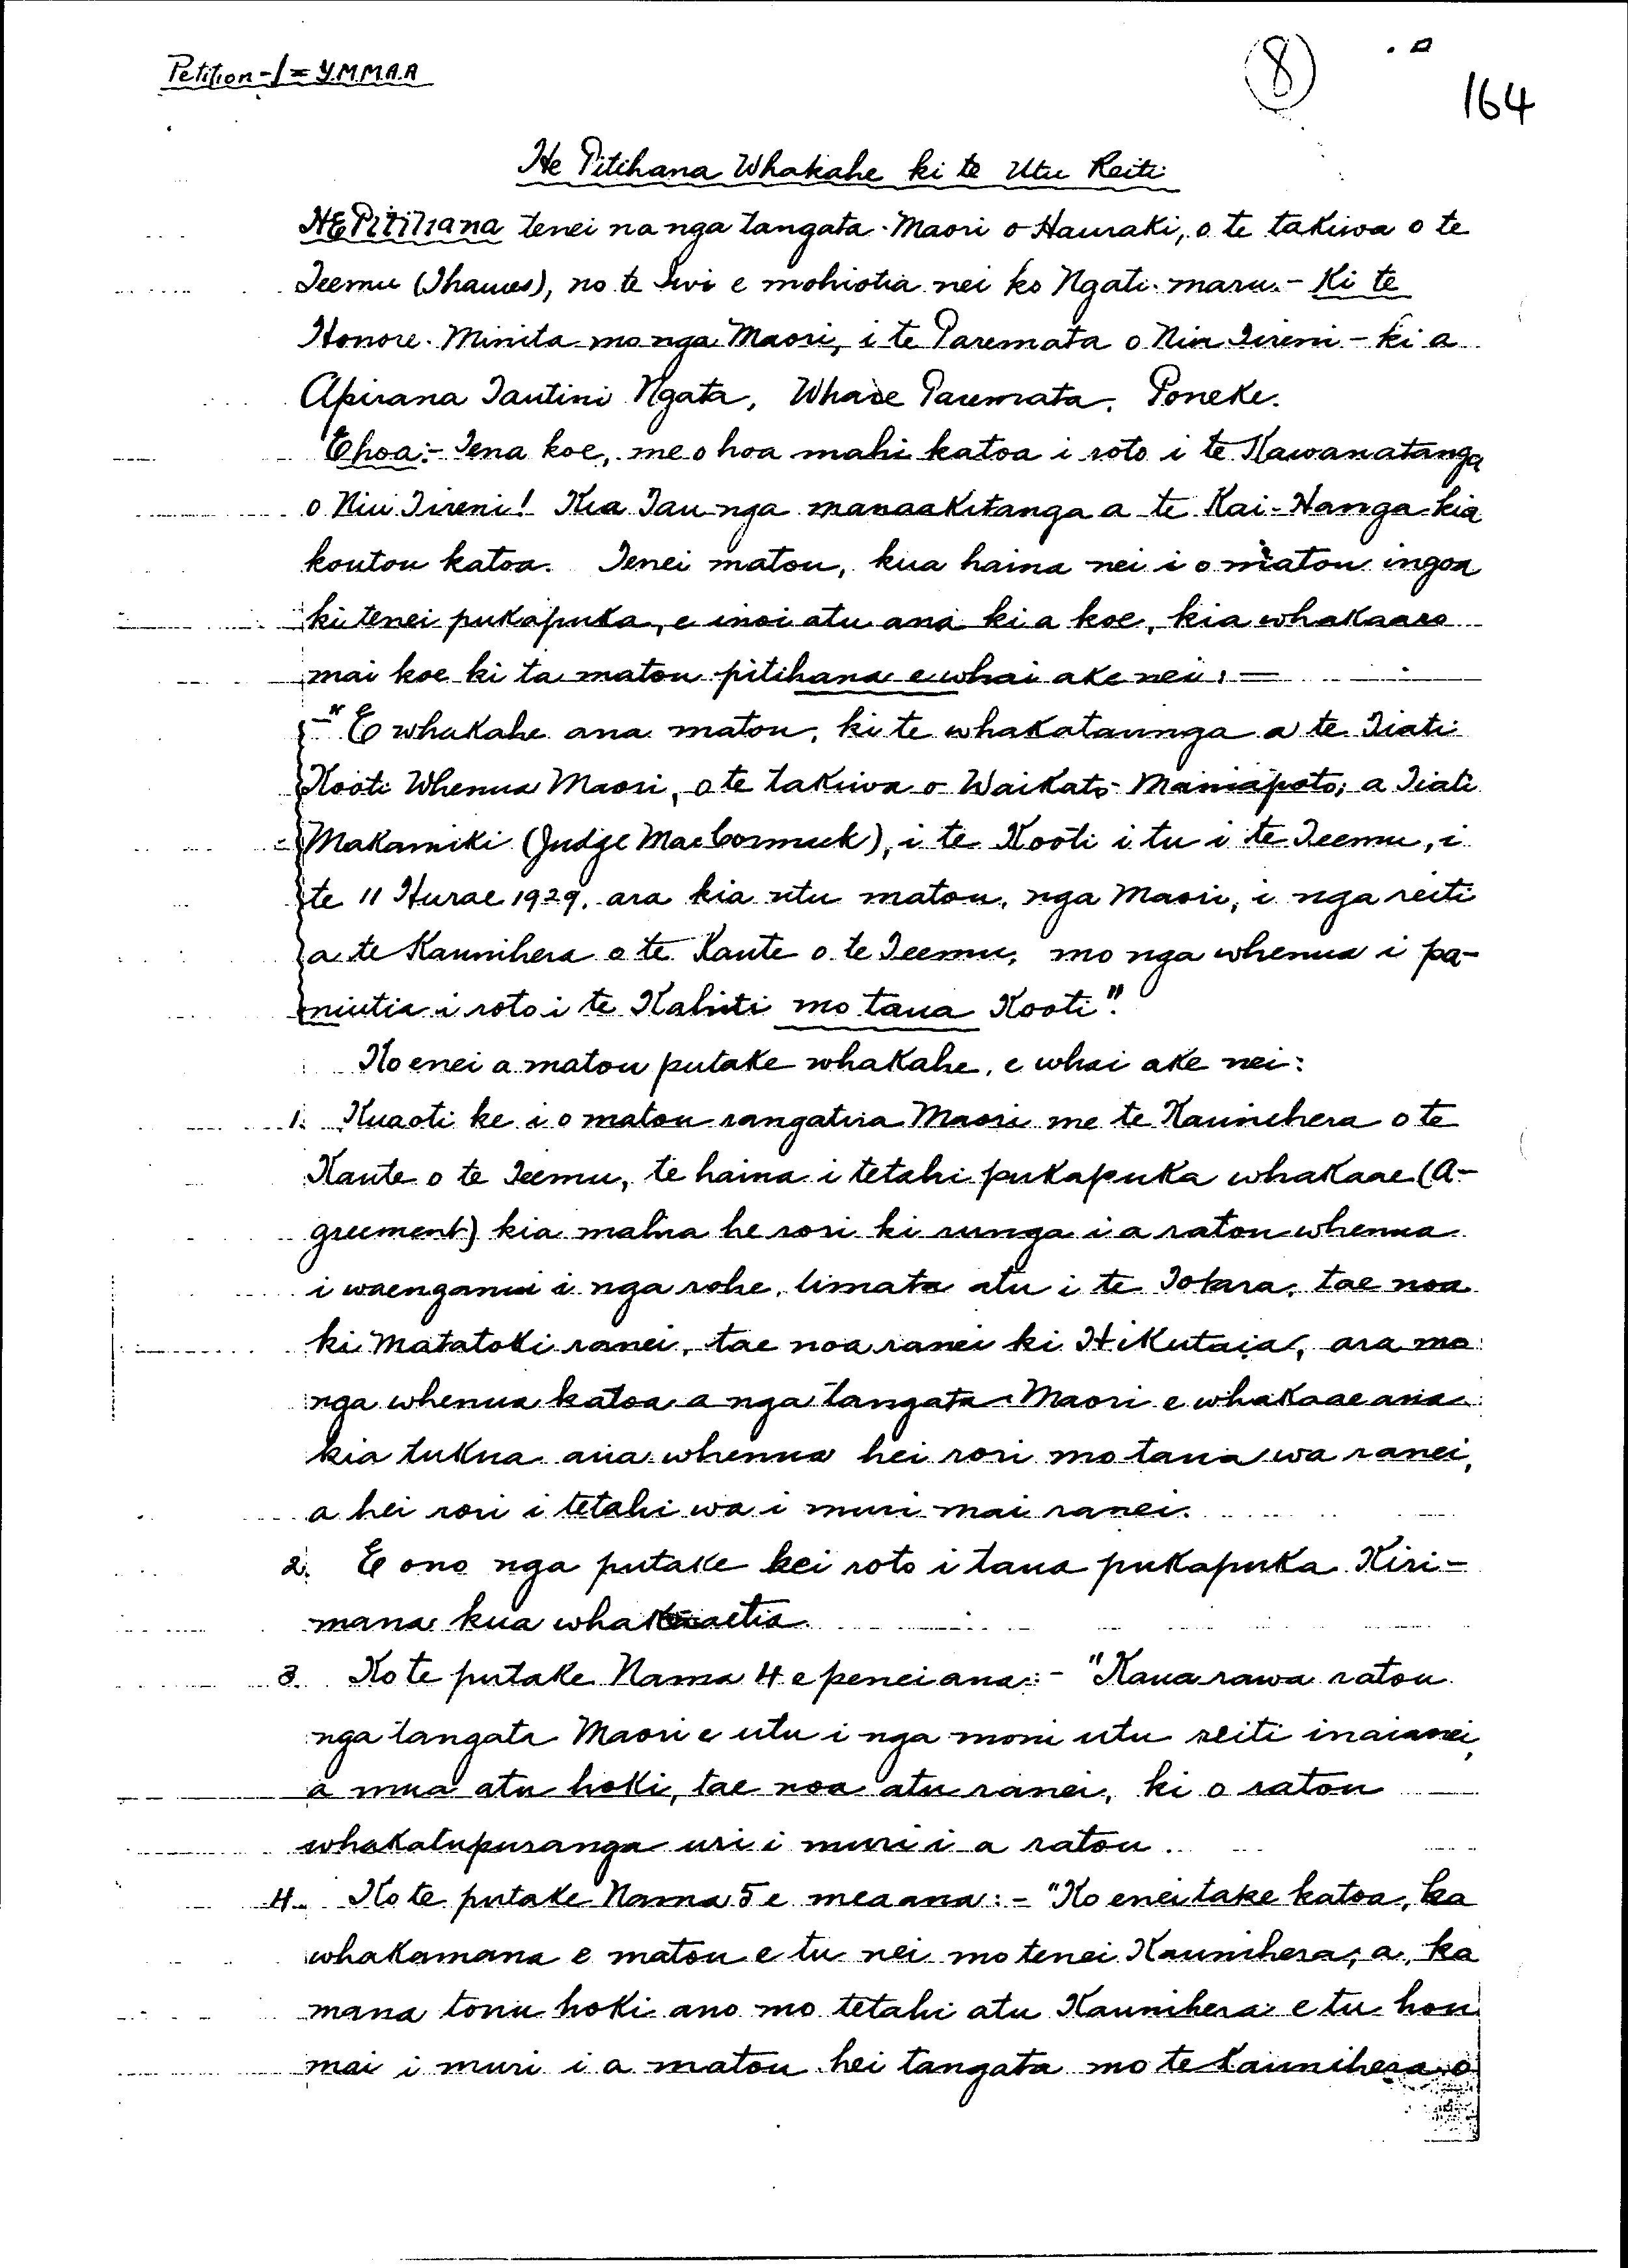 Petition-1 = Y.M.M.A.A
8
164
He Pitihana Whakahe ki te Utu Reiti
HE Pitihana tenei na nga tangata Maori o Hauraki, o te takiwa o te
Teemu (Thames), no te Iwi e mohiotia nei ko Ngati-maru. - Ki te
Honore Minita mo nga Maori, i te Paremata o Niu Tireni - ki a
Apirana Tautini Ngata, Whare Paremata, Poneke.
Ehoa:- Tena koe, me o hoa mahi katoa i roto i te Kawanatanga
o Niu Tireni! Kia Tau nga manaakitanga a te Kai-Hanga kia
koutou katoa. Tenei matou, kua haina nei i o matou ingoa
ki tenei pukapuka, e inoi atu ana ki a koe, kia whakaaro
mai koe ki ta matou pitihana e whai ake nei: —
-"E whakahe ana matou, ki te whakataunga a te Tiati
Kooti Whenua Maori, o te takiwa o Waikato-Maniapoto; a Tiati
Makamiki (Judge MacCormick), i te Kooti i tu i te Teemu, i
te 11 Hurae 1929. ara kia utu matou, nga Maori, i nga reiti
a te Kaunihera o te Kaute o te Teemu, mo nga whenua i pa-
nuitia i roto i te Kahiti mo taua Kooti".
Ko enei a matou putake whakahe, e whai ake nei:
1. Kua oti ke i o matou rangatira Maori me te Kaunihera o te
Kaute o te Teemu, te haina i tetahi pukapuka whakaae (A-
greement) kia mahia he rori ki runga i a ratou whenua
i waenganui i nga rohe, timata atu i te Totara, tae noa
ki Matatoki ranei, tae noa ranei ki Hikutaia, ara mo
nga whenua katoa a nga tangata Maori e whakaae ana
kia tukua aua whenua hei rori mo taua wa ranei,
a hei rori i tetahi wa i muri mai ranei.
2. E ono nga putake kei roto i taua pukapuka Kiri-
mana kua whakaaetia.
3. Ko te putake Nama 4 e penei ana:- "Kaua rawa ratou
nga tangata Maori e utu i nga moni utu reiti inaianei,
a mua atu hoki, tae noa atu ranei, ki o ratou
whakatupuranga uri i muri i a ratou.
4. Ko te putake Nama 5 e mea ana:- "Ko enei take katoa, ka
whakamana e matou e tu nei mo tenei Kaunihera; a, ka
mana tonu hoki ano mo tetahi atu Kaunihera e tu hou
mai i muri i a matou hei tangata mo te Kaunihera o